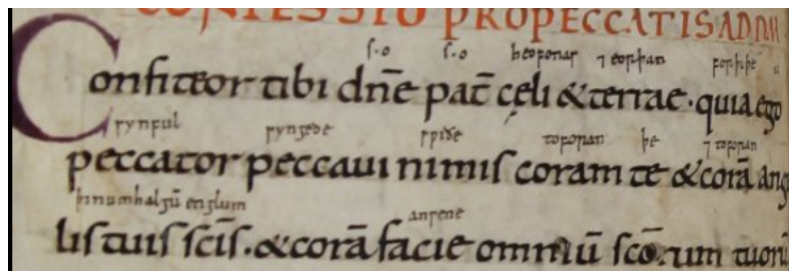 CONFESSIO PRO PECCATIS AD DNM
s.o s.o heofonas ⁊ eorþan forþi þe
Confiteor tibi dn̄e pat̄ cęli & terrae. quia ego
synful syngode swiðe toforan þe ⁊ toforan
peccator peccaui nimis coram te & corā ange
þinum halgū englum
lis tuis sc̄is. & corā facie omniū sc̄orum tuorū